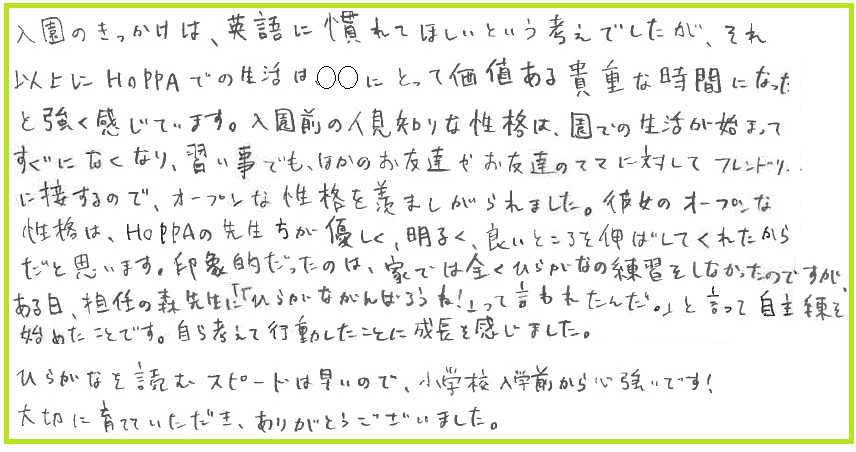 入園のきっかけは、英語に慣れてほしいという考えでしたが、それ
以上にHOPPAでの生活は〇〇にとって価値ある貴重な時間になった
と強く感じています。入園前の人見知りな性格は、園での生活が始まって
すぐになくなり、習い事でも、ほかのお友達やお友達のママに対してフレンドリー
に接するので、オープンな性格を羨ましがられました。彼女のオープンな
性格は、HOPPAの先生方が優しく、明るく、良いところを伸ばしてくれたから
だと思います。印象的だったのは、家では全くひらがなの練習をしなかったのですが、
ある日、担任の森先生に「「ひらがながんばろうね!」って言われたんだ。」と言って自主練を
始めたことです。自ら考えて行動したことに成長を感じました。
ひらがなを読むスピードは早いので、小学校入学前から心強いです!
大切に育てていただき、ありがとうございました。